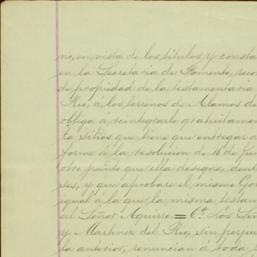 no, en vista de los títulos y consta
en la Secretaría de Fomento, reco
de propiedad de la testamentaria
Rio, á los terrenos de Alamos de
obliga á reintegrarle gratuitame
ta sitios que tiene que entregar a
forme á la resolucion de 16 de Ju
otro punto que ella designe, dent
es, y que aprobare el mismo Go
igual á la que la misma testam
al Señor Aguirre. = 6ª Los Se
y Martinez del Rio, sin perju
la anterior, renuncian á toda